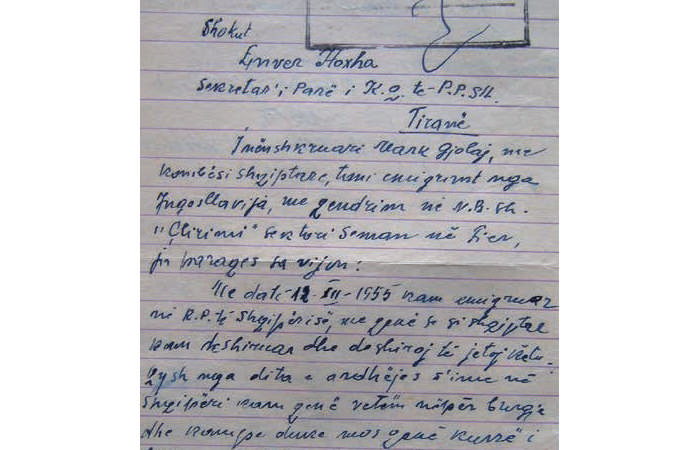 Shokut
Enver Hoxha
Sekretar'i Parë i K.Q. të P.P.SH.
Tiranë
I nënshkruari Mark Gjolaj, me
kombësi shqiptare, tani emigrant nga
Jugosllavija, me qendrim në N.B.Sh.
"Çlirimi" sektori Seman në Fier,
ju parages sa vijon:
Me datë 12-XII-1955 kam emigruar
në R.P. të Shqipërisë, me qenë se si shqiptar
kam deshiruar dhe deshiroj të jetoj këtu.
Qysh nga dita e ardhëjes s'ime në
Shqipëri kam qenë vetëm nëpër burgje
dhe kampe duke mos qenë kurrë i